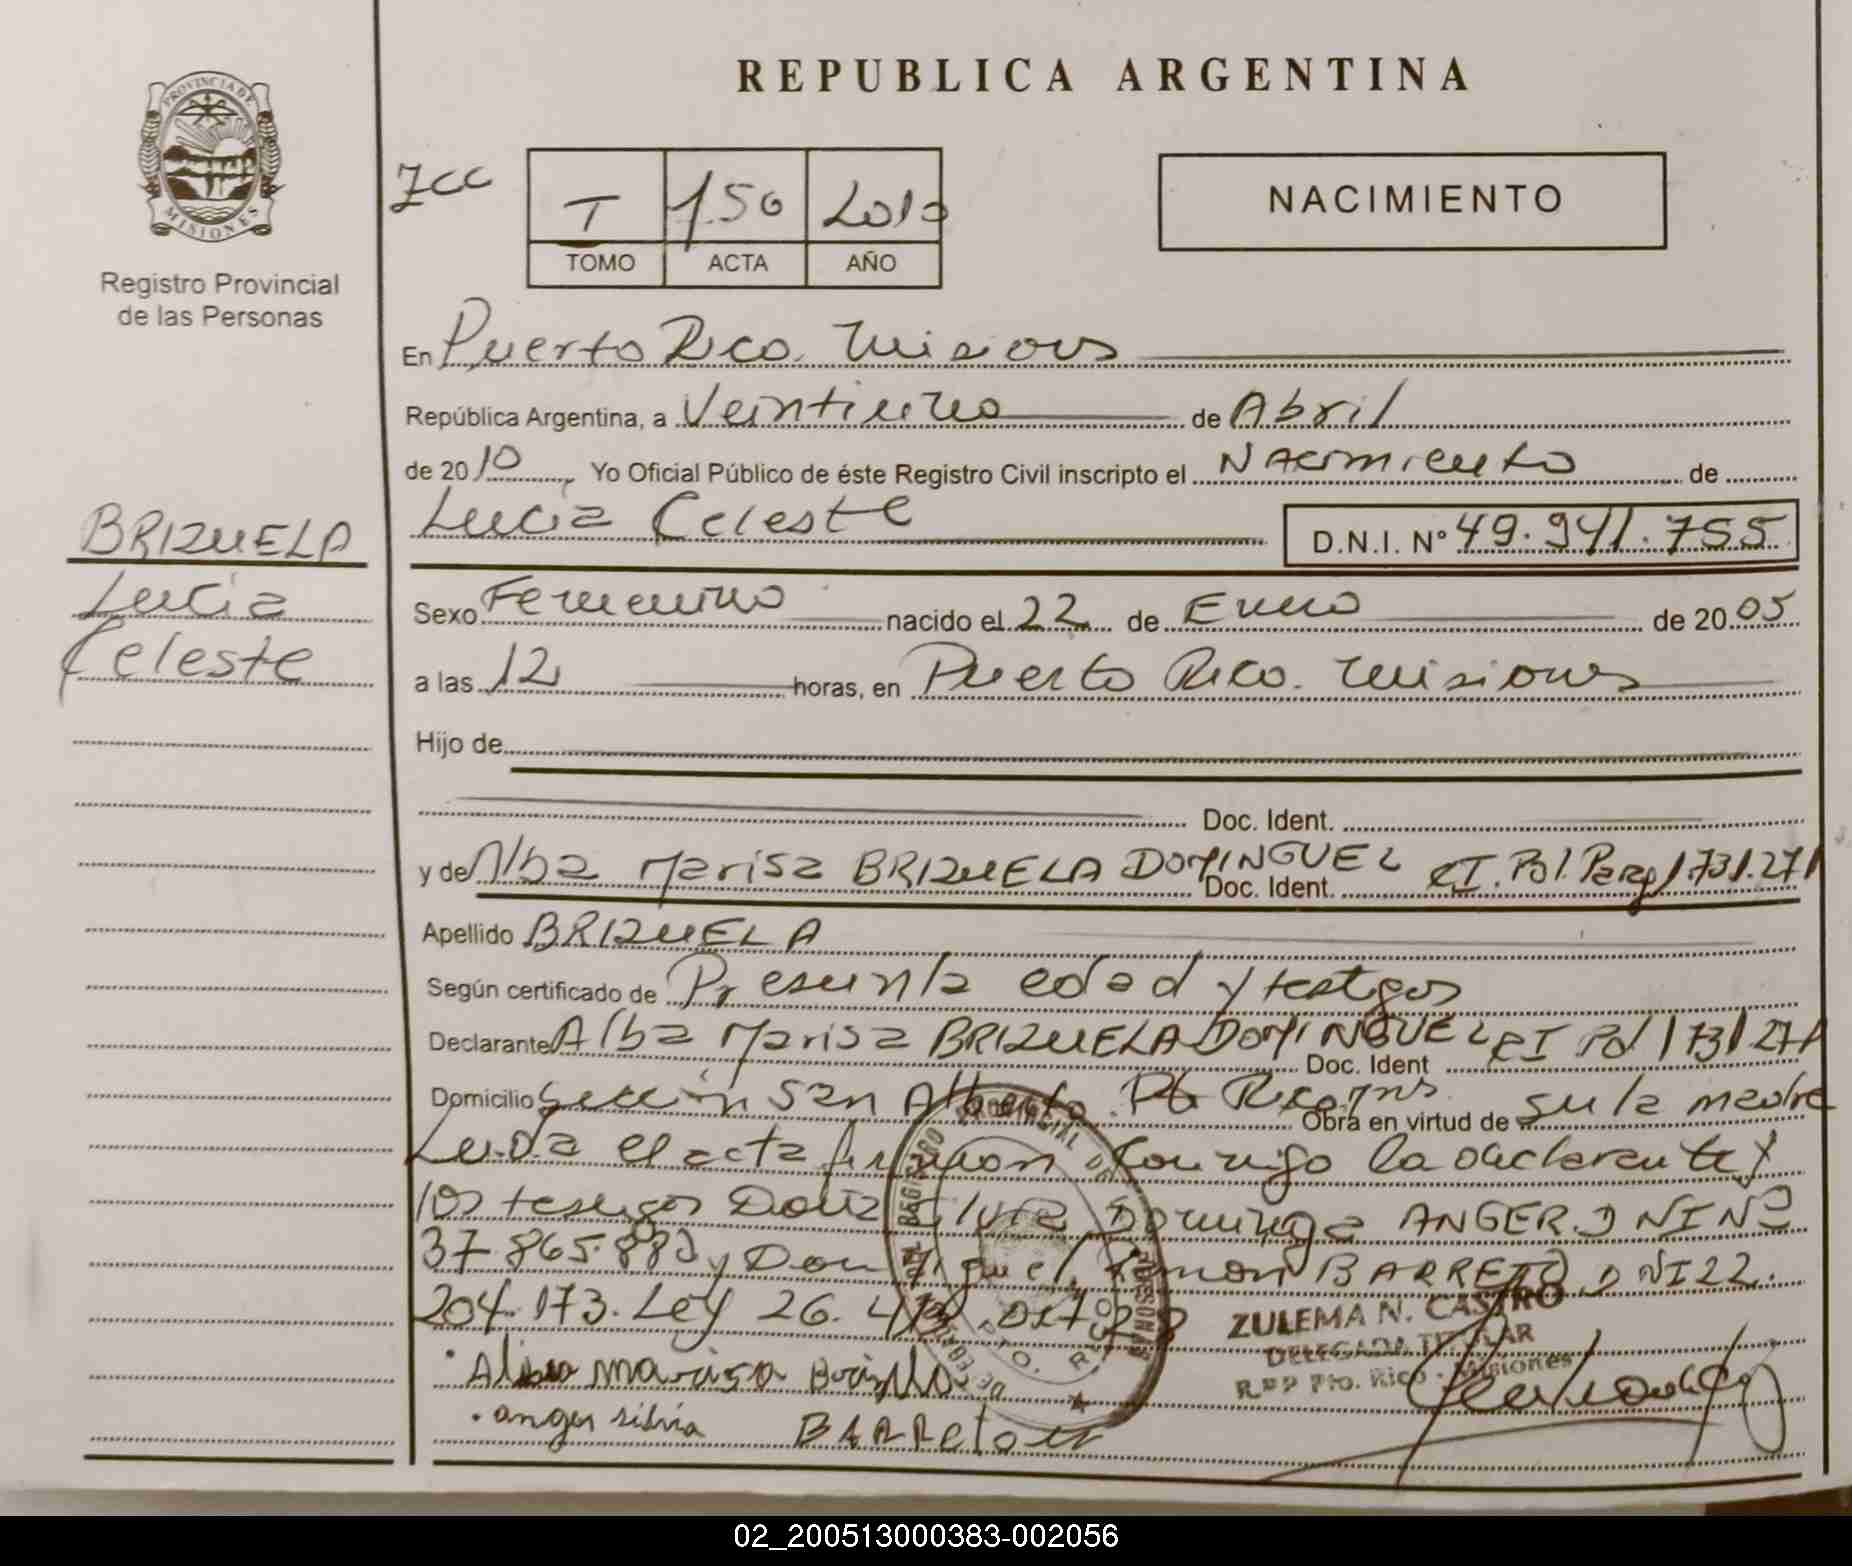 REPUBLICA ARGENTINA
PROVINCIA DE
MISIONES
Registro Provincial
de las Personas
T 150 2010
TOMO ACTA AÑO
NACIMIENTO
En Puerto Rico. Misiones
República Argentina, a Veintiuno de Abril
de 2010, Yo Oficial Público de éste Registro Civil inscripto el Nacimiento de
Lucia Celeste D.N.I. N° 49.941.755
BRIZUELA
Lucia
Celeste
Sexo Femenino nacido el 22 de Enero de 2005
a las 12 horas, en Puerto Rico. Misiones
Hijo de
Doc. Ident.
y de Alba Marisa BRIZUELA DOMINGUEZ Doc. Ident. CI. Pol. Parag 1.731.271
Apellido BRIZUELA
Según certificado de Presunta edad y testigos
Declarante Alba Marisa BRIZUELA DOMINGUEZ Doc. Ident CI Pol 1731.271
Domicilio Sección San Alberto. Pto Rico. Mns Obra en virtud de su la madre
Leida el acta firman conmigo la declarante y
los testigos Doña Silvia Dominga ANGER. DNI Nº
37.865.880 y Don Miguel Ramon BARRETO DNI 22.
204.173. Ley 26.413
ZULEMA N. CASTRO
DELEGADA TITULAR
R.P.P Pto. Rico - Misiones
Alba marisa Brizuela
anger silvia BARReto
REGISTRO PROVINCIAL DE LAS PERSONAS
PTO. RICO
02_200513000383-002056